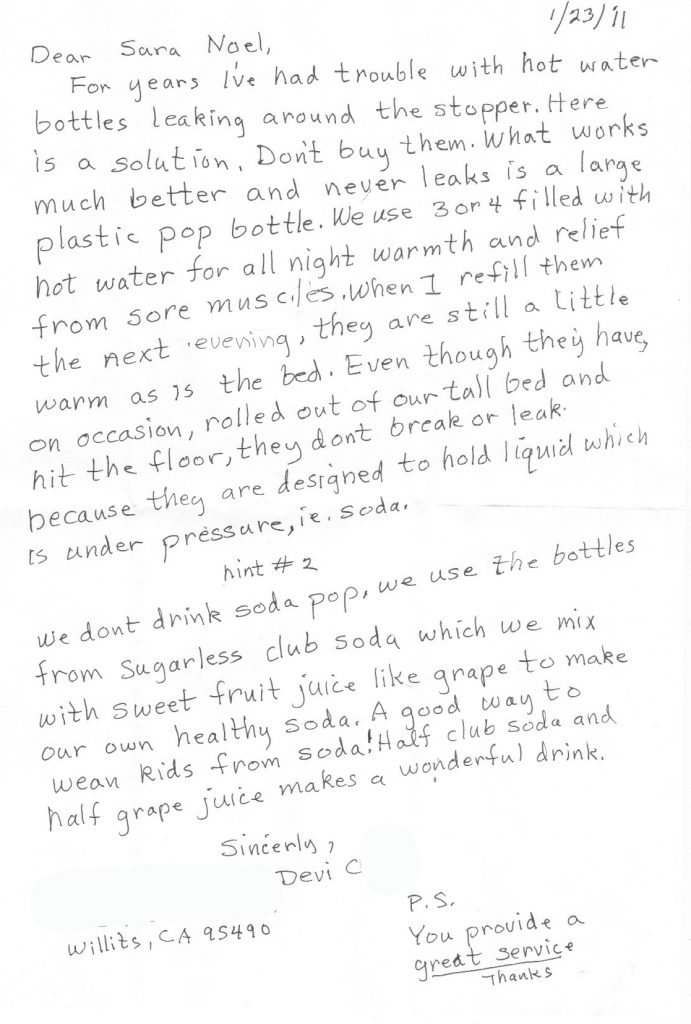 1/23/11
Dear Sara Noel,
For years I've had trouble with hot water
bottles leaking around the stopper. Here
is a solution. Don't buy them. What works
much better and never leaks is a large
plastic pop bottle. We use 3 or 4 filled with
hot water for all night warmth and relief
from sore muscles. When I refill them
the next evening, they are still a little
warm as is the bed. Even though they have,
on occasion, rolled out of our tall bed and
hit the floor, they dont break or leak.
because they are designed to hold liquid which
is under pressure, ie. soda.
hint # 2
we dont drink soda pop, we use the bottles
from sugarless club soda which we mix
with sweet fruit juice like grape to make
our own healthy soda. A good way to
wean kids from soda! Half club soda and
half grape juice makes a wonderful drink.
Sincerly,
Devi C
Willits, CA 95490
P.S.
You provide a
great service
Thanks